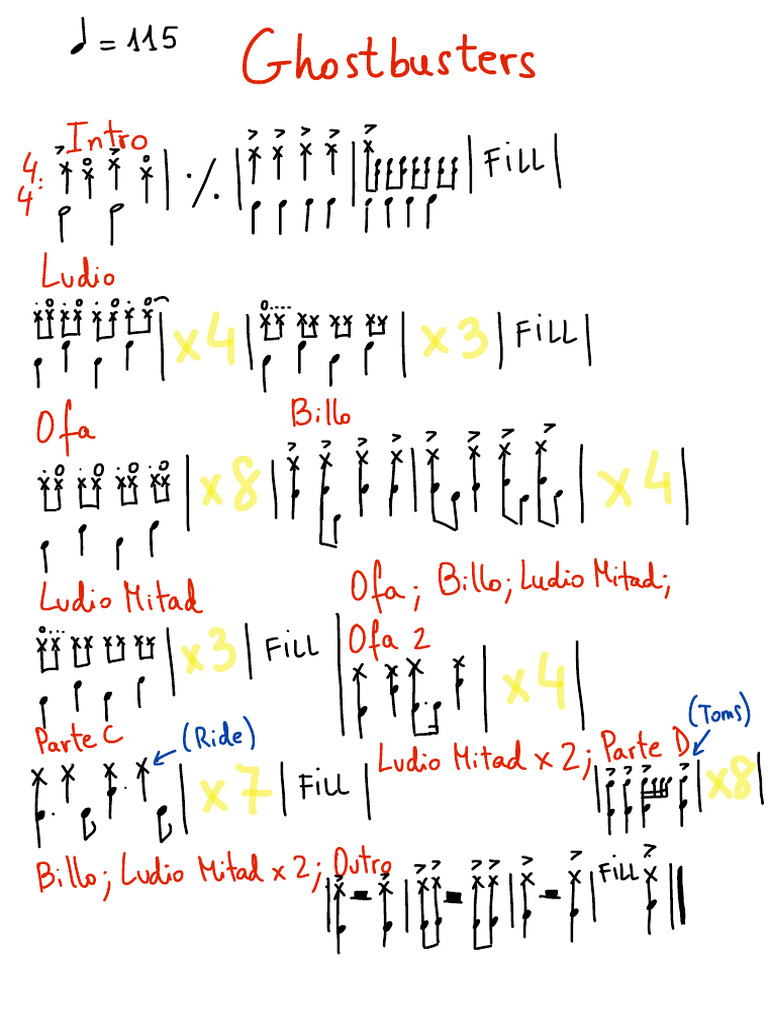 ♩ = 115
Ghostbusters
Intro
4:4
FiLL
Ludio
x4 x3 FiLL
Ofa Billo
x8 x4
Ludio Mitad Ofa; Billo; Ludio Mitad;
x3 FiLL Ofa 2 x4
Parte C (Ride) Ludio Mitad x 2; Parte D (Toms)
x7 FiLL x8
Billo; Ludio Mitad x 2; Outro
FiLL